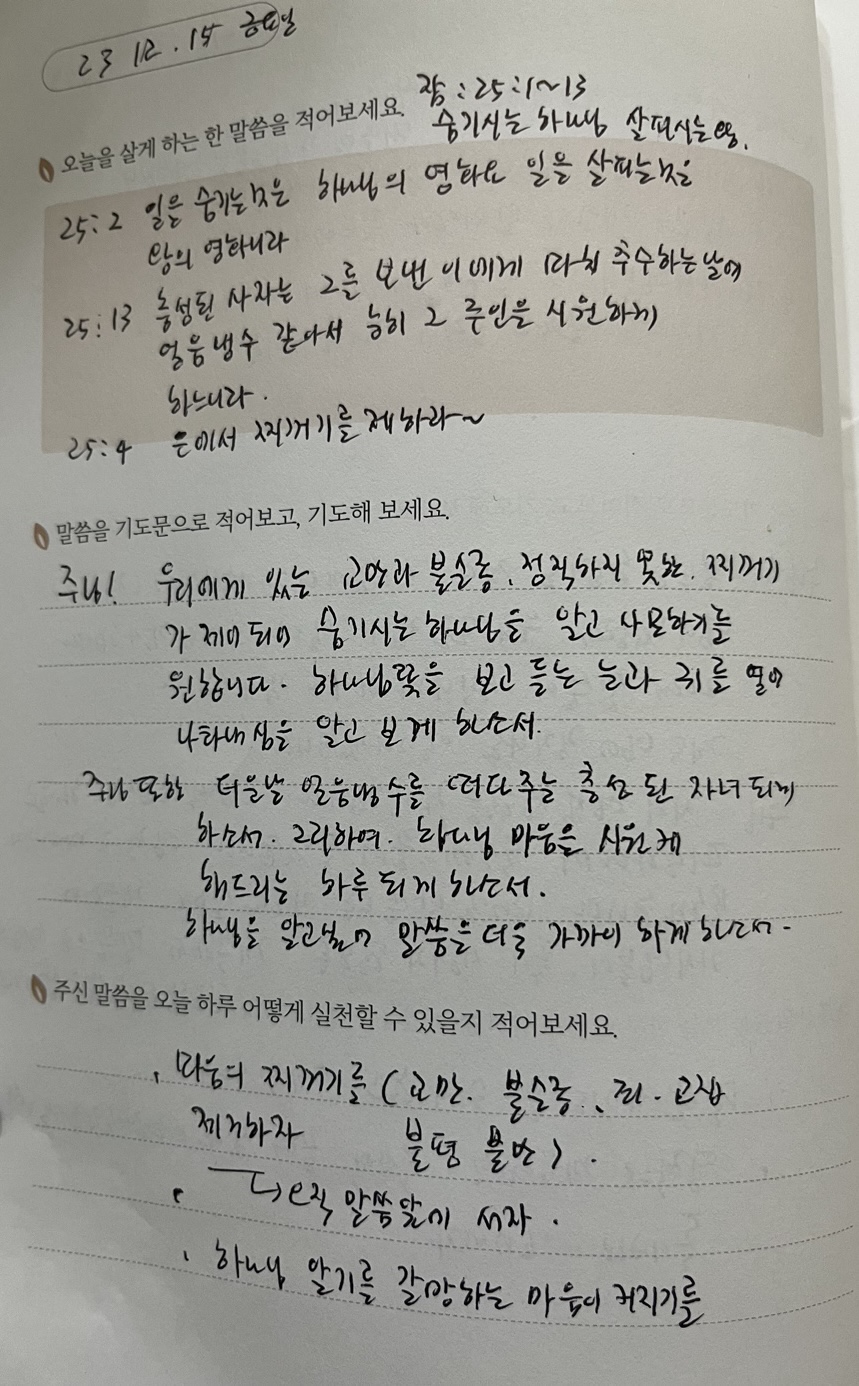 23 12. 15 금요일
잠 : 25 : 1~13
오늘을 살게 하는 한 말씀을 적어보세요. 숨기시는 하나님 살피시는 왕.
25:2 일을 숨기는것은 하나님의 영화요 일을 살피는것은
왕의 영화니라
25:13 충성된 사자는 그를 보낸 이에게 마치 추수하는날에
얼음냉수 같아서 능히 그 주인을 시원하게
하느니라.
25:4 은에서 찌꺼기를 제하라~
말씀을 기도문으로 적어보고, 기도해 보세요.
주님! 우리에게 있는 교만과 불순종, 정직하지 못한, 찌꺼기
가 제하 되어 숨기시는 하나님을 알고 사모하기를
원합니다. 하나님뜻을 보고 듣는 눈과 귀를 열어
나타내심을 알고 보게 하소서.
주님 또한 더운날 얼음냉수를 떠다주는 충성된 자녀되게
하소서. 그리하여. 하나님 마음을 시원케
해드리는 하루 되게 하소서.
하나님을 알고싶어 말씀을 더욱 가까이 하게 하소서-
주신 말씀을 오늘 하루 어떻게 실천할 수 있을지 적어보세요.
· 마음의 찌꺼기를 ( 교만. 불순종, 죄. 고집
제거하자 불평 불만 ) .
· ↳ 오직 말씀앞에 서자 .
· 하나님 알기를 갈망하는 마음이 커지기를